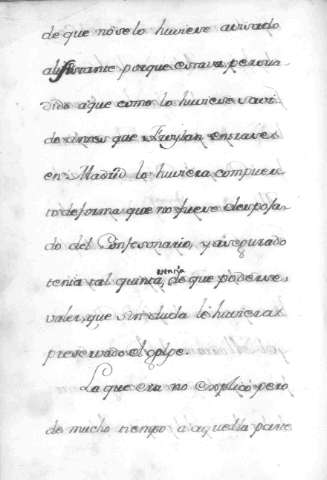 de que nose lo huviese avisado
al instante porque estava persua-
dido aque como lo huviese savi-
do antes que Froylan entrase
en Madrid lo huviera compues-
to deforma que no fuese despoja-
do del Confesonario, y asegurado
tenia tal quinta esencia, de que poderse
valer, que sin duda le huvieras
preservado el golpe.
La que era no explicò pero
de mucho tiempo a aquella parte